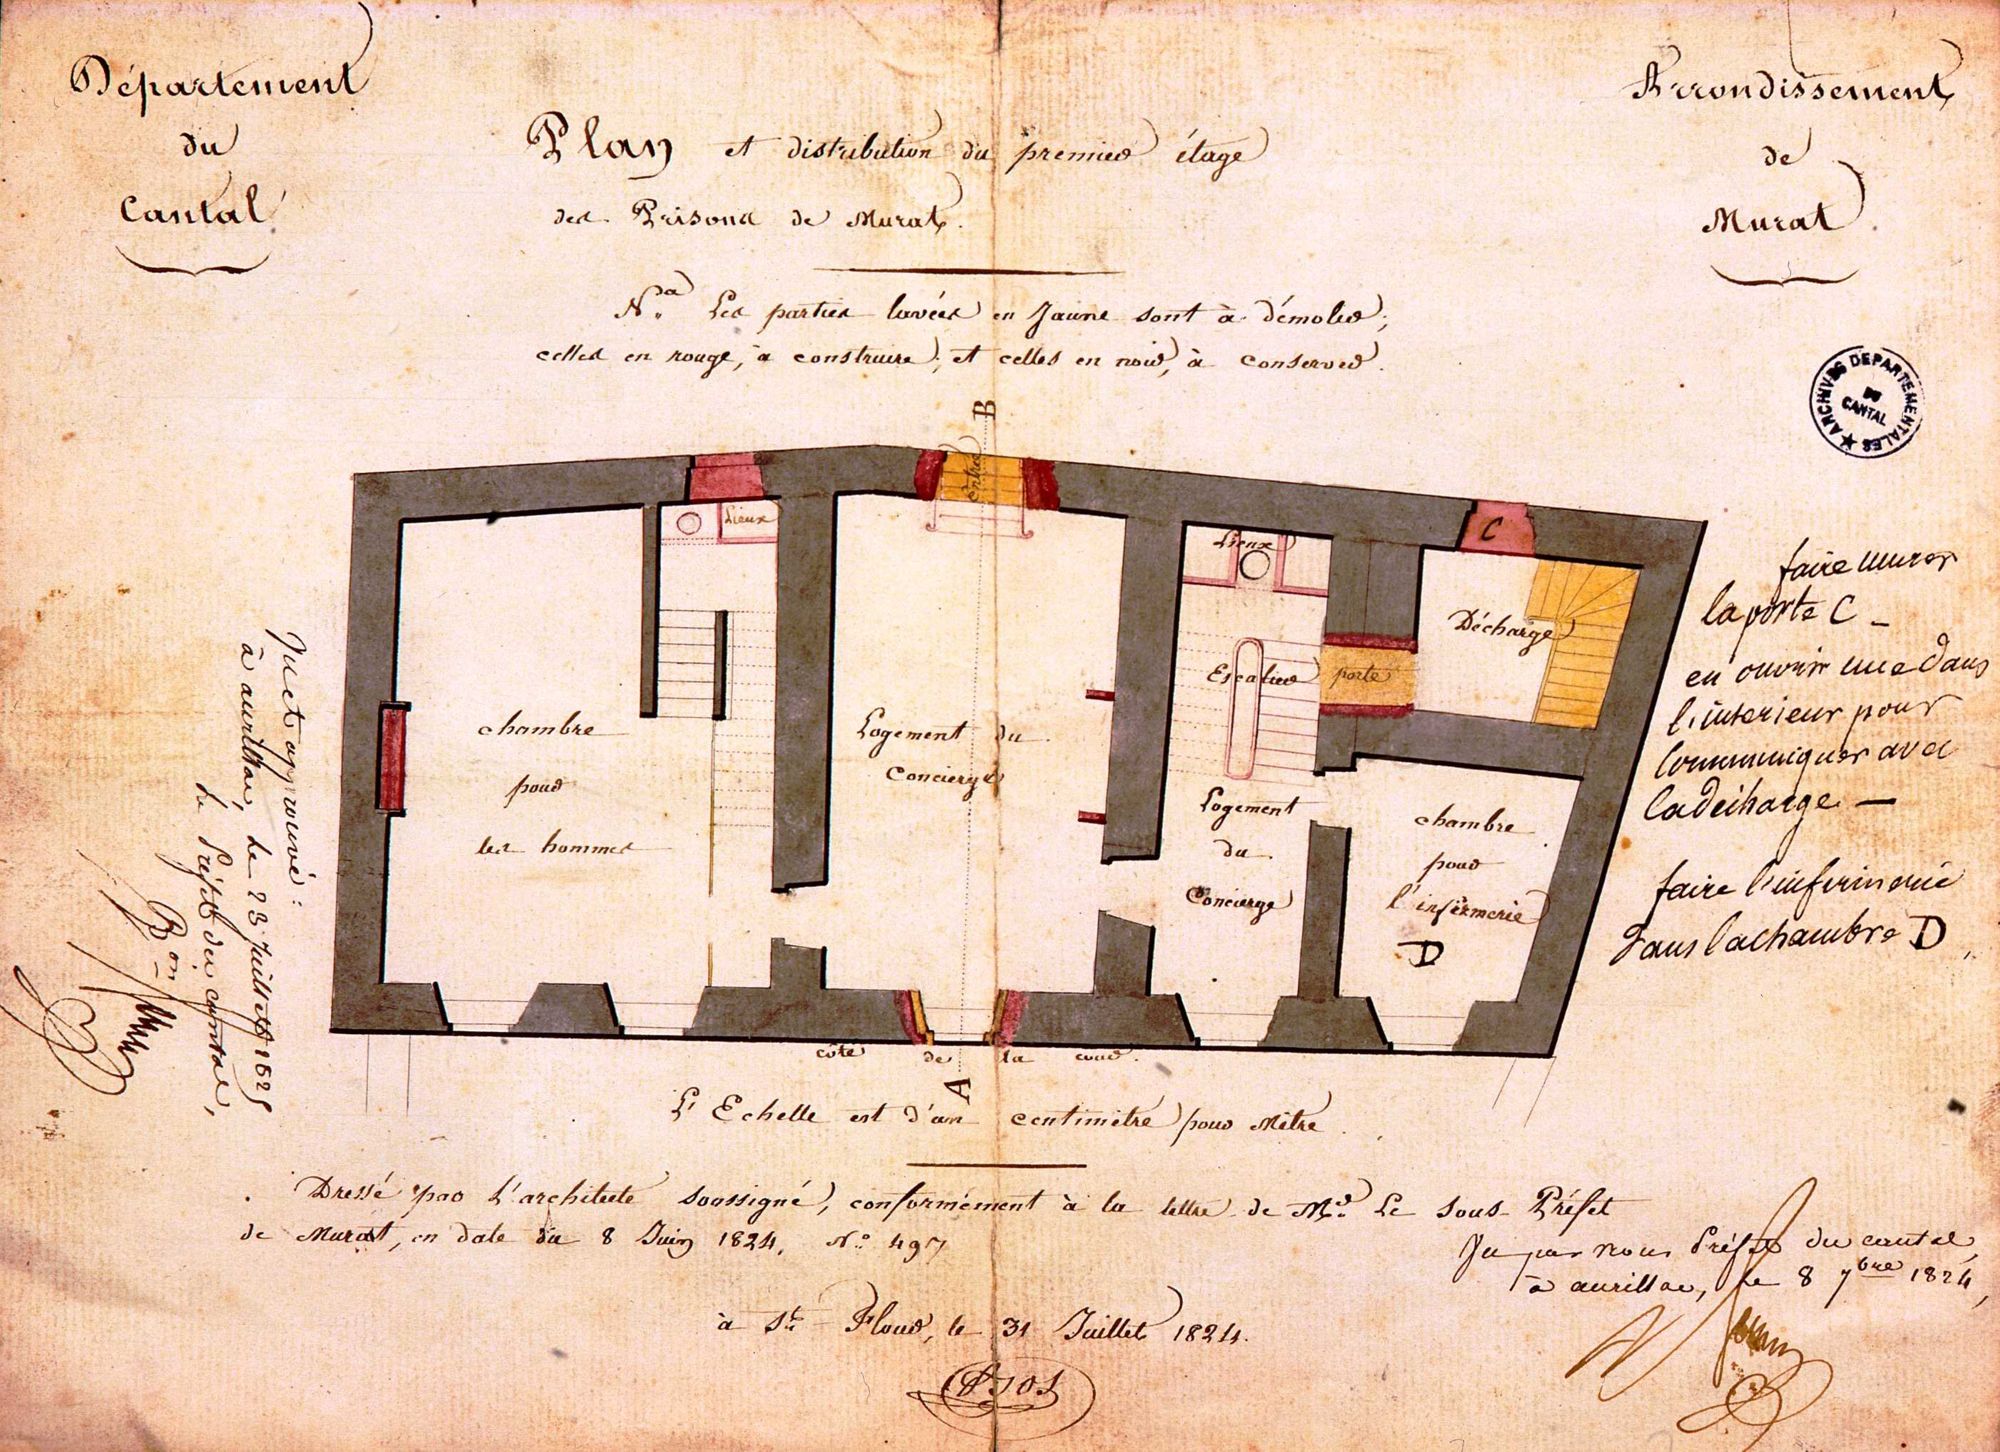 Département
du
Cantal
Arrondissement
de
Murat
Plan et distribution du premier étage
des Prisons de Murat.
Nª. Les parties lavées en Jaune sont à démolir;
celles en rouge, à construire; et celles en noir, à conserver.
ARCHIVES DEPARTEMENTALES
DU
CANTAL
B
entrée
Lieux
Lieux
C
Décharge
Escalier
porte
chambre
pour
les hommes
Logement du
Concierge
Logement
du
Concierge
chambre
pour
l'infirmerie
D
faire murer
la porte C _
en ouvrir une dans
l'interieur pour
communiquer avec
la decharge —
faire l'infirmerie
dans la chambre D
Vu et approuvé:
à aurillac, le 23 Juillet 1825
Le Préfet du cantal,
Bon
côté de la cour.
A
L'Echelle est d'un centimètre pour Mètre.
Dressé par L'architecte soussigné, conformément à la lettre de Mr. Le sous-Préfet
de Murat, en date du 8 Juin 1824, No. 497
à St. Flour, le 31 Juillet 1824.
Vu par nous Préfet du cantal,
à aurillac, le 8 7bre 1824,